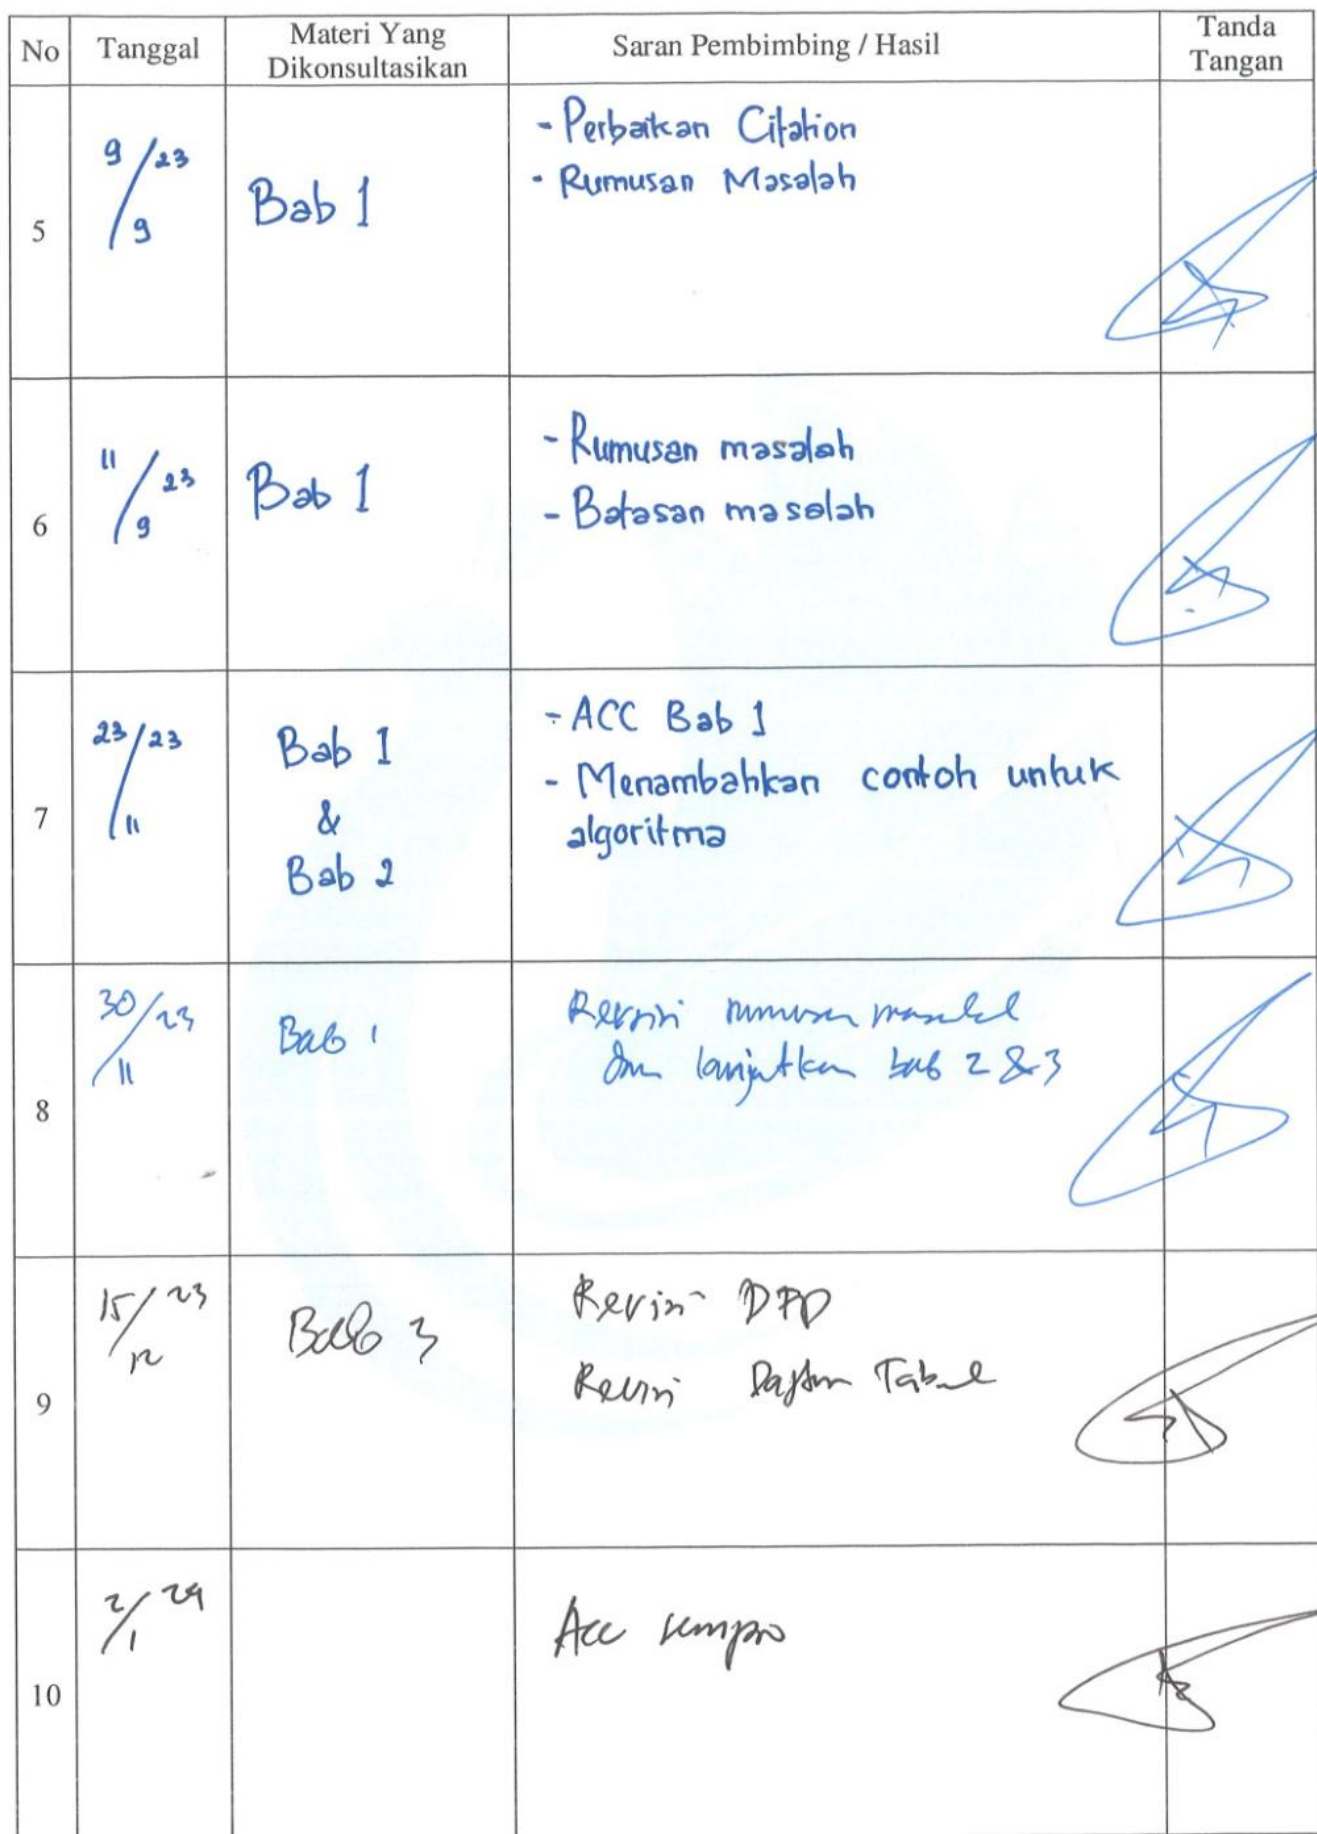 No Tanggal Materi Yang Dikonsultasikan Saran Pembimbing / Hasil Tanda Tangan
5 9/9 23 Bab 1 - Perbaikan Citation
- Rumusan Masalah
6 11/9 23 Bab 1 - Rumusan masalah
- Batasan masalah
7 23/11 23 Bab 1 - ACC Bab 1
& - Menambahkan contoh untuk
Bab 2 algoritma
8 30/11 23 Bab 1 Revisi rumusan masalah
dan lanjutkan bab 2 & 3
9 15/12 23 Bab 3 Revisi DFD
Revisi Daftar Tabel
10 2/1 24 Acc sempro